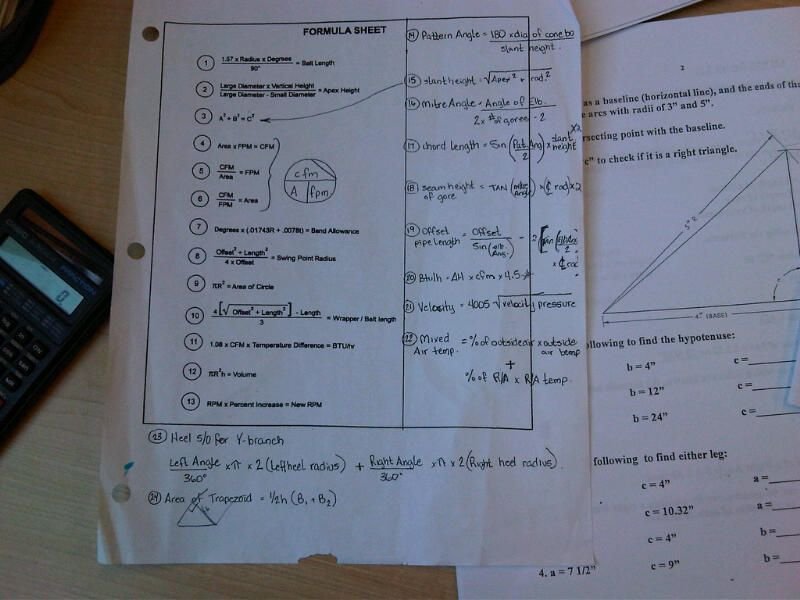 FORMULA SHEET
1 1.57 x Radius x Degrees = Belt Length
90°
2 Large Diameter x Vertical Height = Apex Height
Large Diameter - Small Diameter
3 A² + B² = C²
4 Area x FPM = CFM
5 CFM = FPM
Area
6 CFM = Area
FPM
cfm
A fpm
7 Degrees x (.01743R + .0078t) = Bend Allowance
8 Offset² + Length² = Swing Point Radius
4 x Offset
9 πR² = Area of Circle
10 4[√Offset² + Length²] - Length = Wrapper / Belt length
3
11 1.08 x CFM x Temperature Difference = BTU/hr
12 πR²h = Volume
13 RPM x Percent Increase = New RPM
14 Pattern Angle = 180 x dia of cone ba
slant height.
15 slant height = √Apex² + rad.²
16 Mitre Angle = Angle of Elb.
2 x # of gores - 2
17 chord Length = Sin (Pat. Ang) x slant height x2
2
18 seam height = TAN (mitre Angle) x (℄ rad) x 2
of gore
19 Offset = Offset - 2
pipe length Sin (elb. Ang.)
2
x ℄ rad
20 Btu/h = ΔH x cfm x 4.5
21 Velosity = 4005 √velocity pressure
22 Mixed = % of outside air x outside
Air temp. air temp
+
% of R/A x R/A temp.
23 Heel S/O for Y-branch
Left Angle x π x 2 (Left heel radius) + Right Angle x π x 2 (Right heel radius).
360° 360°
24 Area of Trapezoid = 1/2 h (B₁ + B₂)
0
2
as a baseline (horizontal line), and the ends of th
e arcs with radii of 3" and 5".
rsecting point with the baseline.
c" to check if it is a right triangle.
5" R
4" (BASE)
ollowing to find the hypotenuse:
b = 4" c =
b = 12" c =
b = 24" c =
following to find either leg:
c = 4" a =
c = 10.32" a =
c = 4" b =
4. a = 7 1/2" c = 9" b =